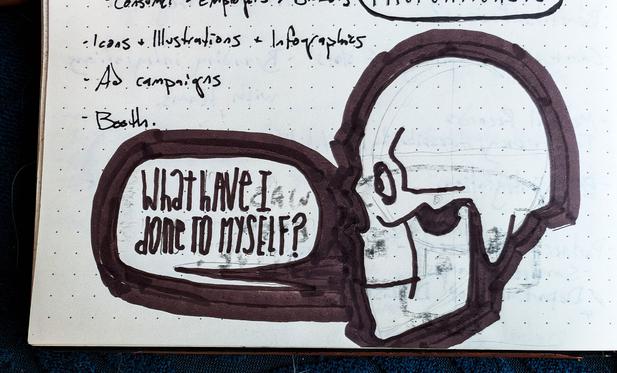 - Consumer
- Icons + Illustrations + Infographics
- Ad campaigns
- Booth.
WHAT HAVE I
dONE TO MYSELF?